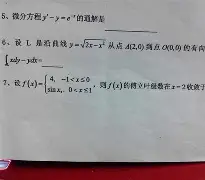 5、微分方程 y' - y = e⁻ˣ 的通解是
6、设 L 是沿曲线 y = √(2x - x²) 从点 A(2,0) 到点 O(0,0) 的有向
∫ xdy - ydx =
7、设 f(x) = { 4, -1 < x ≤ 0
sin x, 0 < x ≤ 1 , 则 f(x) 的傅立叶级数在 x = 2 收敛于